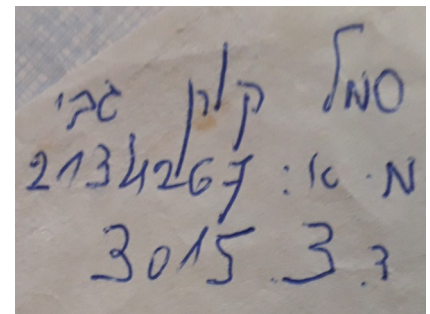 סמל קלק גבי
מ. א: 2134267
ד. 3015.3